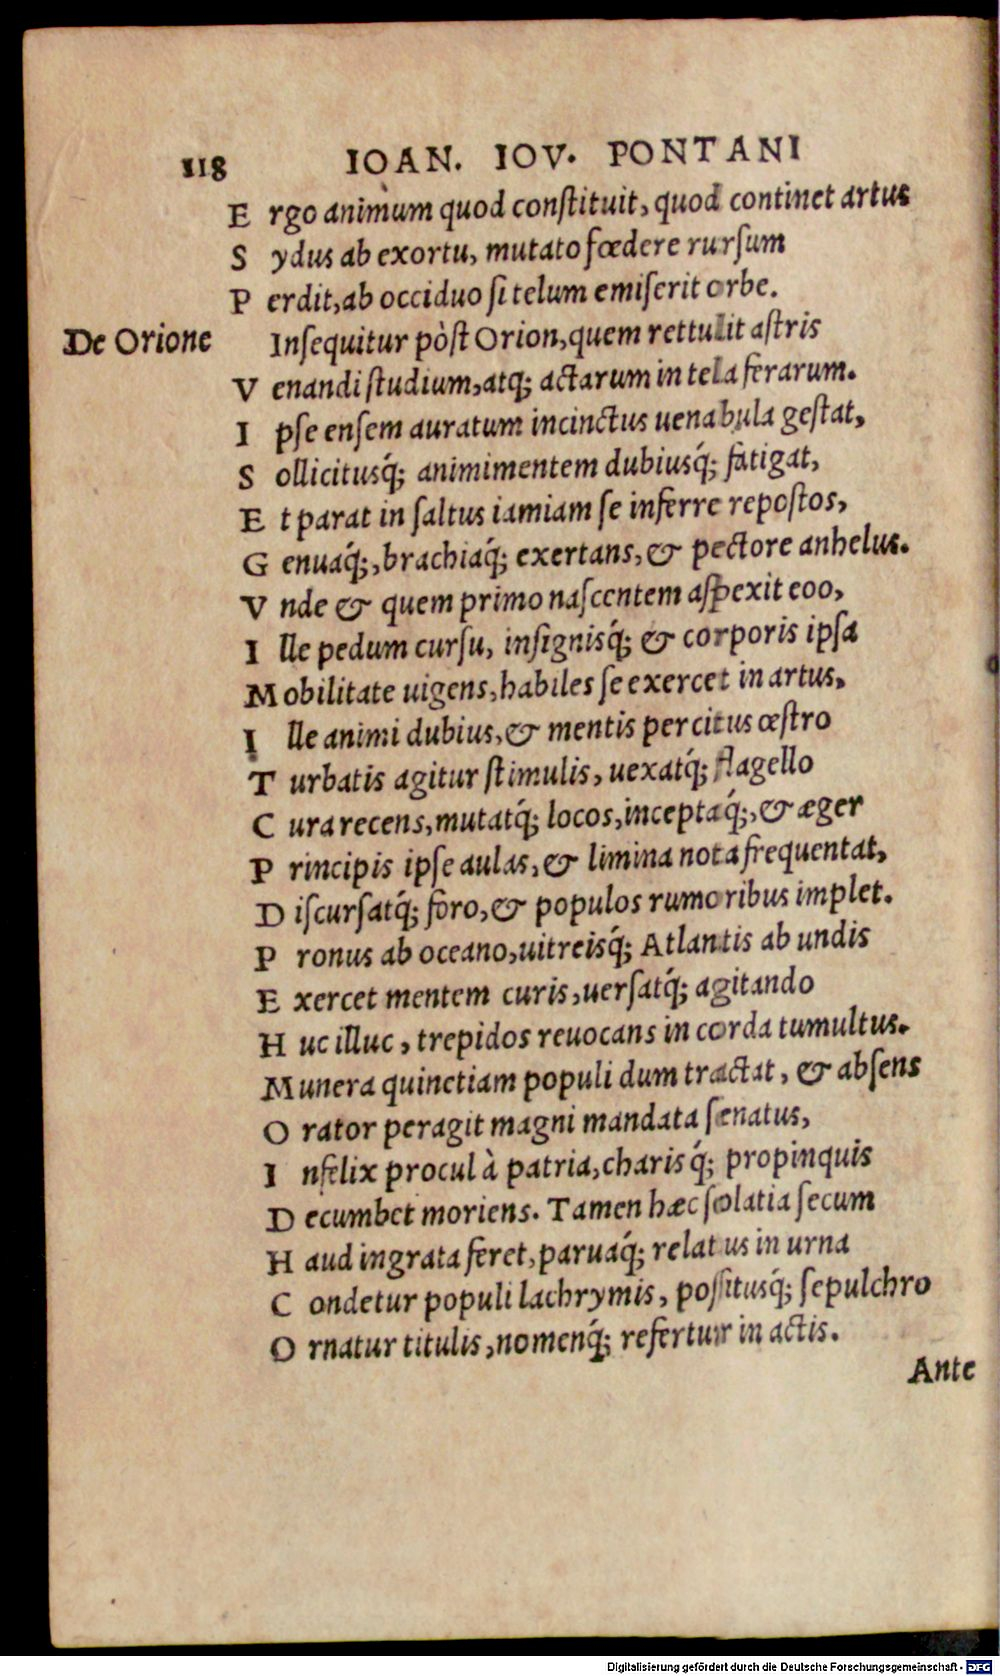 118 IOAN. IOV. PONTANI
E rgo animum quod conſtituit, quod continet artus
S ydus ab exortu, mutato fœdere rurſum
P erdit, ab occiduo ſi telum emiſerit orbe.
De Orione Inſequitur pòſt Orion, quem rettulit aſtris
V enandi ſtudium, atq; actarum in tela ferarum.
I pſe enſem auratum incinctus uenabula geſtat,
S ollicitusq́; animi mentem dubiusq́; fatigat,
E t parat in ſaltus iamiam ſe inferre repoſtos,
G enuaq́;, brachiaq́; exertans, & pectore anhelus.
V nde & quem primo naſcentem aſpexit eoo,
I lle pedum curſu, inſignisq́; & corporis ipſa
M obilitate uigens, habiles ſe exercet in artus,
I lle animi dubius, & mentis percitus œſtro
T urbatis agitur ſtimulis, uexatq́; flagello
C ura recens, mutatq́; locos, inceptaq́;, & æger
P rincipis ipſe aulas, & limina nota frequentat,
D iſcurſatq́; foro, & populos rumoribus implet.
P ronus ab oceano, uitreisq́; Atlantis ab undis
E xercet mentem curis, uerſatq́; agitando
H uc illuc, trepidos reuocans in corda tumultus.
M unera quinetiam populi dum tractat, & abſens
O rator peragit magni mandata ſenatus,
I nfelix procul à patria, charisq́; propinquis
D ecumbet moriens. Tamen hæc ſolatia ſecum
H aud ingrata feret, paruaq́; relatus in urna
C ondetur populi lachrymis, poſſitusq́; ſepulchro
O rnatur titulis, nomenq́; refertur in actis.
Ante
Digitalisierung gefördert durch die Deutsche Forschungsgemeinschaft - DFG